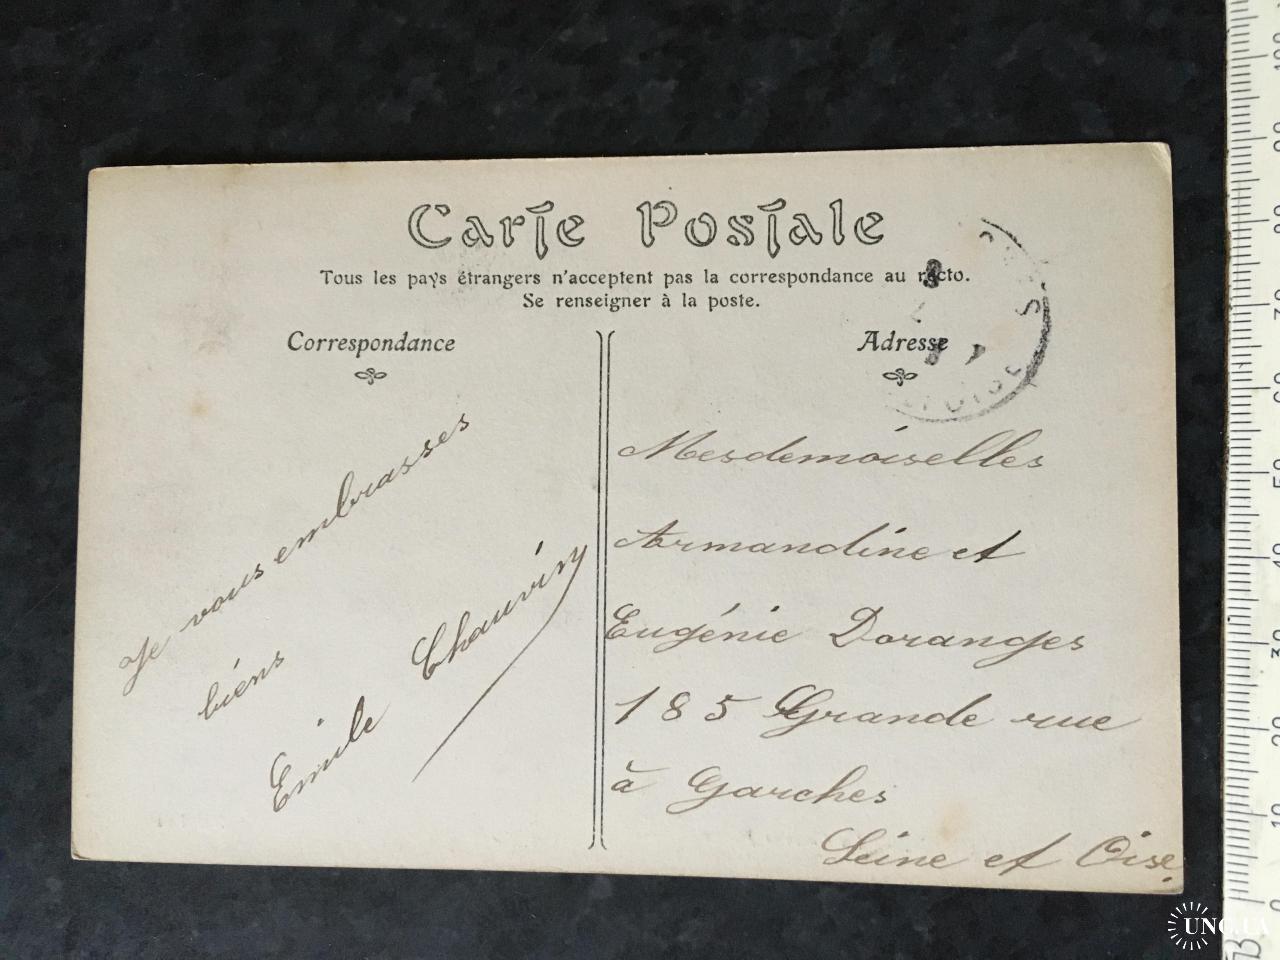 Carte Postale
Tous les pays étrangers n'acceptent pas la correspondance au recto.
Se renseigner à la poste.
Correspondance
Adresse
Je vous embrasses
biens
Emile Chauviry
Mesdemoiselles
Armandine et
Eugénie Doranges
185 Grande rue
à Garches
Seine et Oise.
0 10 20 30 40 50 60 70 80 90 100
UNC.UA